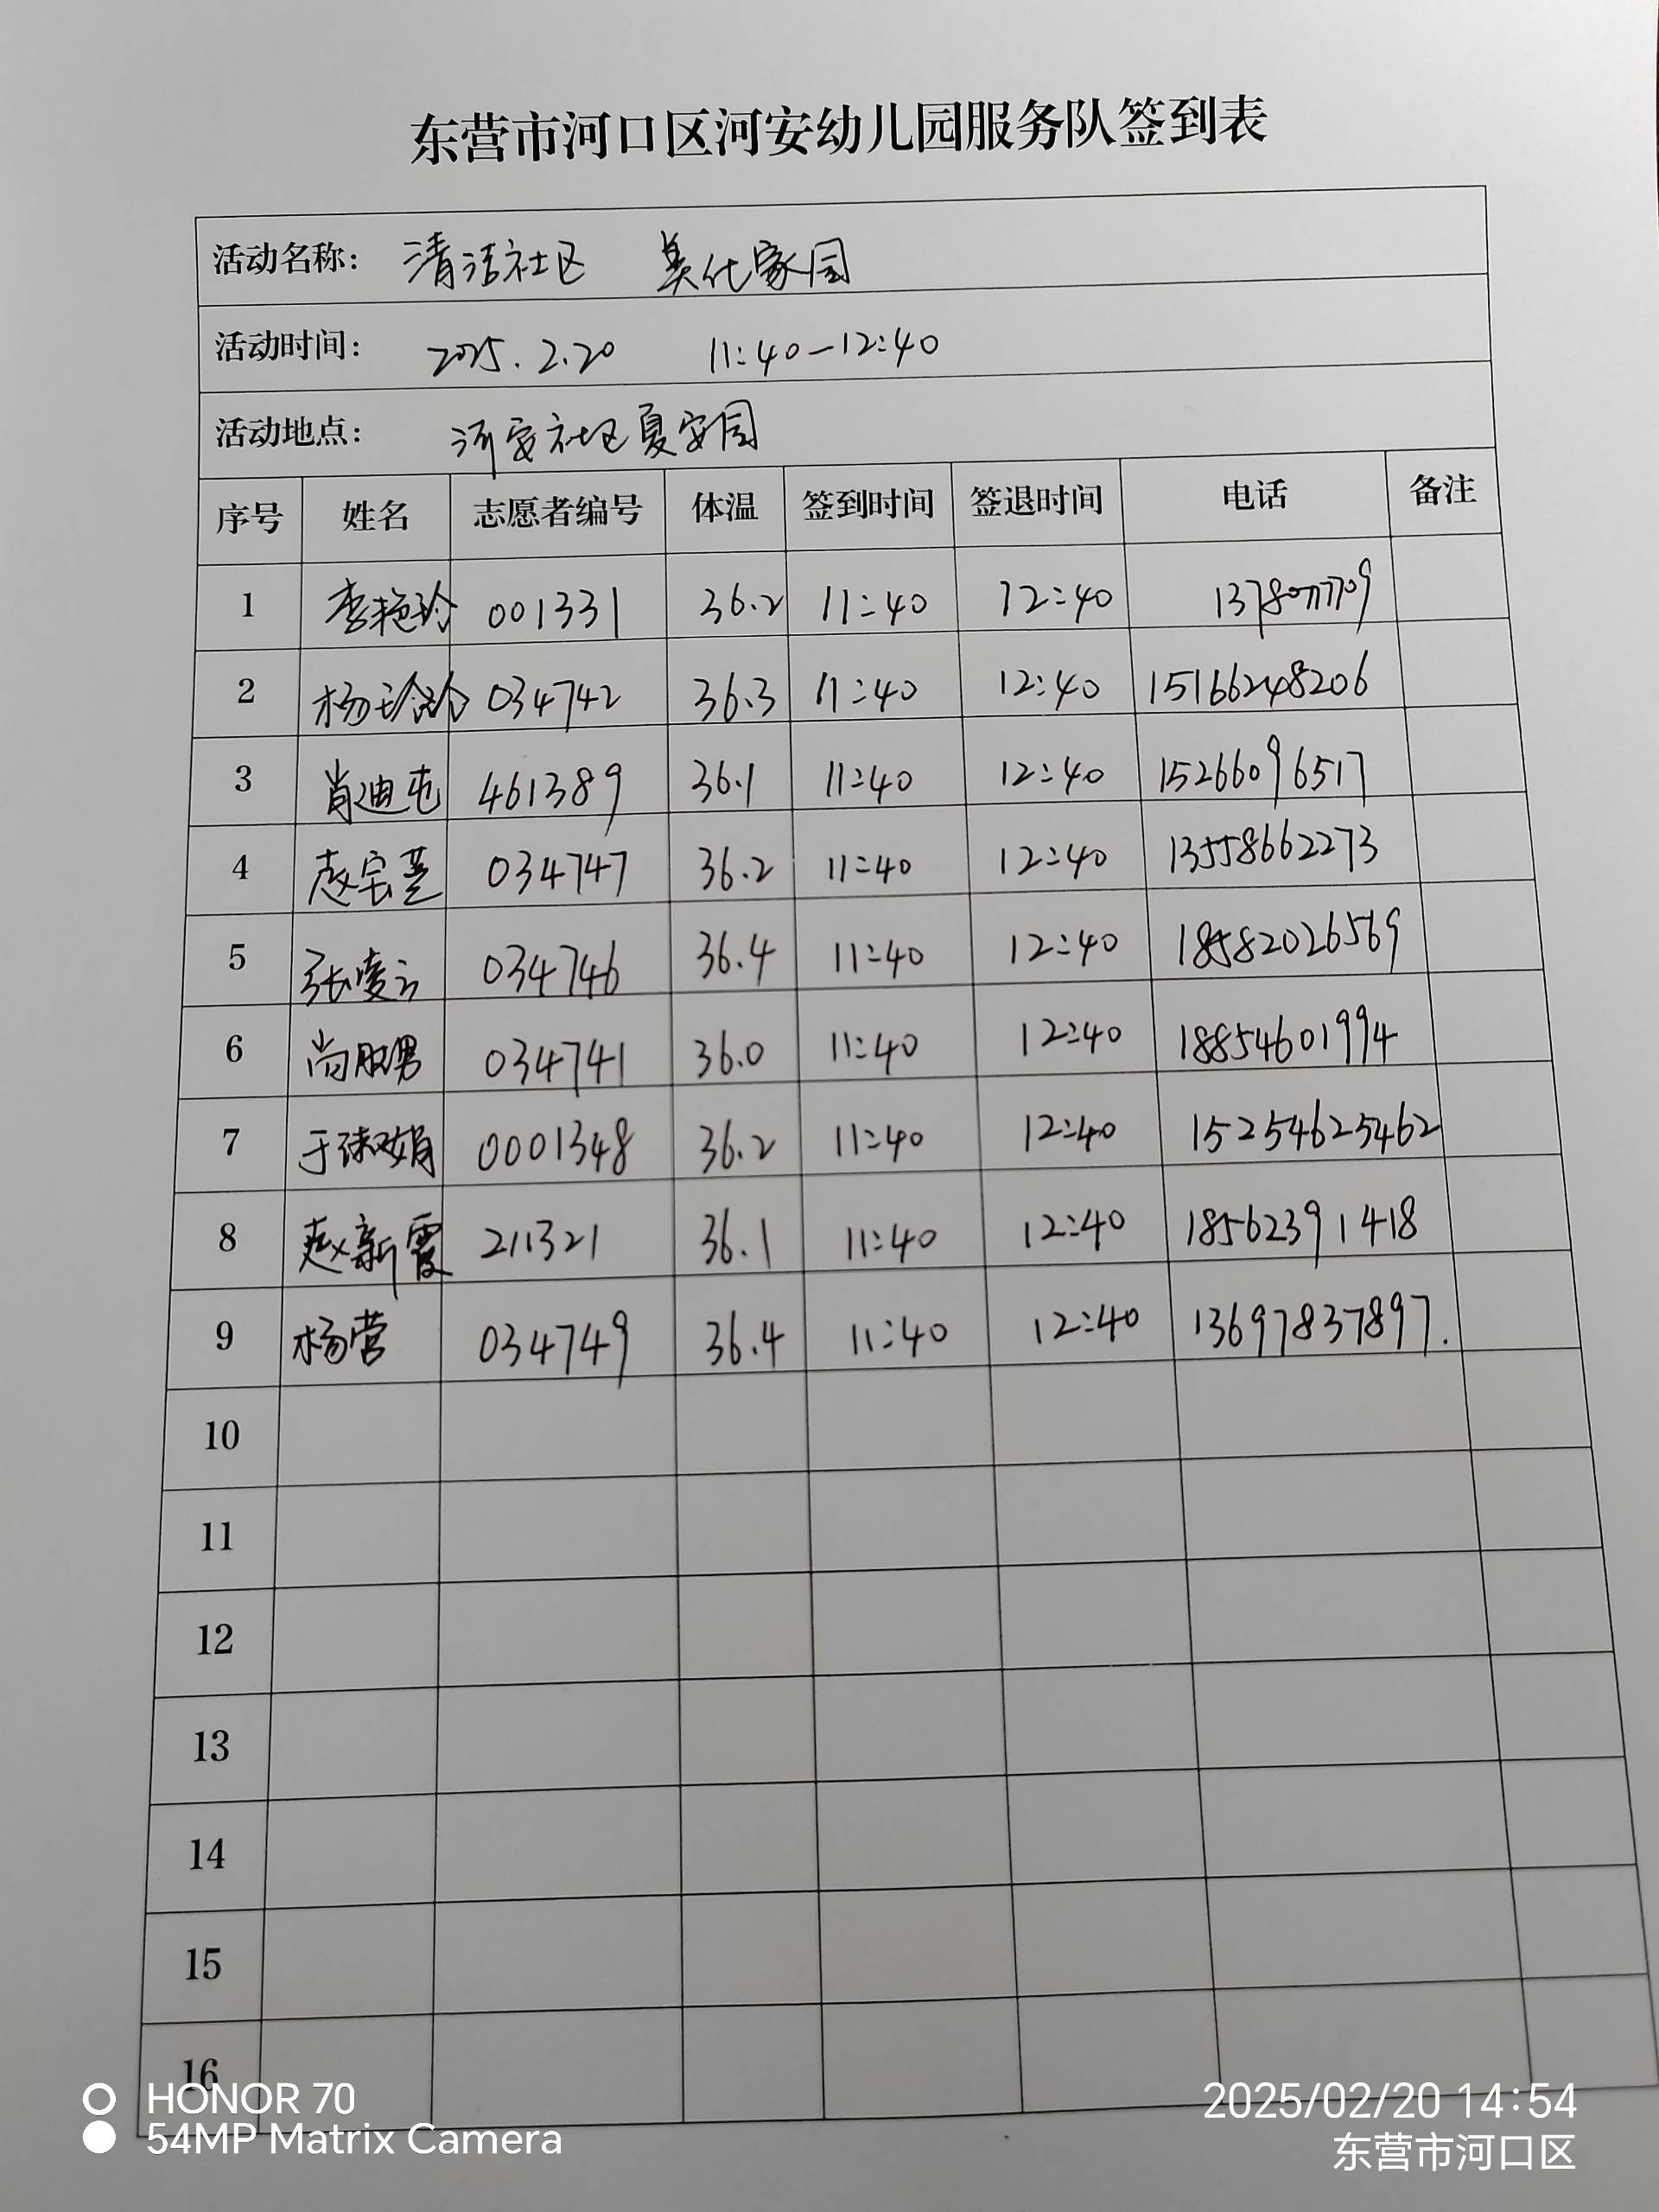 东营市河口区河安幼儿园服务队签到表
活动名称: 清洁社区 美化家园
活动时间: 2025.2.20 11:40—12:40
活动地点: 河安社区夏安园
序号 姓名 志愿者编号 体温 签到时间 签退时间 电话 备注
1 李艳玲 001331 36.2 11:40 12:40
2 杨玲玲 034742 36.3 11:40 12:40 15166248206
3 肖迪 461389 36.1 11:40 12:40 15266096517
4 赵 034747 36.2 11:40 12:40 13558662273
5 张凌云 034746 36.4 11:40 12:40 18582026569
6 尚胜男 034741 36.0 11:40 12:40 18854601994
7 于淑娟 0001348 36.2 11:40 12:40 15254625462
8 赵新霞 211321 36.1 11:40 12:40 18562391418
9 杨营 034749 36.4 11:40 12:40 13697837897.
10
11
12
13
14
15
16
HONOR 70
54MP Matrix Camera
2025/02/20 14:54
东营市河口区